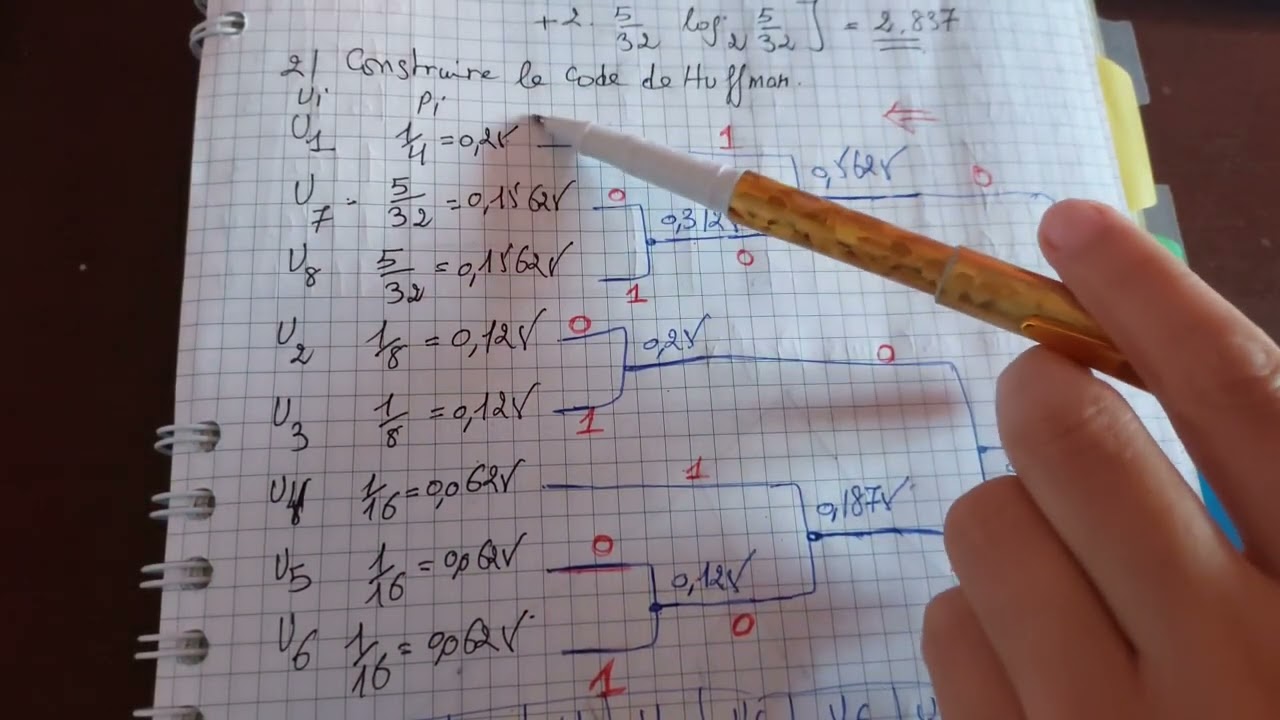 + 2. 5/32 log₂ 5/32 ] = 2.837
2/ Construire le Code de Huffman.
Ui Pi
U1 1/4 = 0,25 1 0,5625 0
U7 - 5/32 = 0,15625 0 0,3125 0
U8 5/32 = 0,15625 1
U2 1/8 = 0,125 0 0,25 0
U3 1/8 = 0,125 1
U4 1/16 = 0,0625 1 0,1875
U5 1/16 = 0,0625 0 0,125 0
U6 1/16 = 0,0625 1